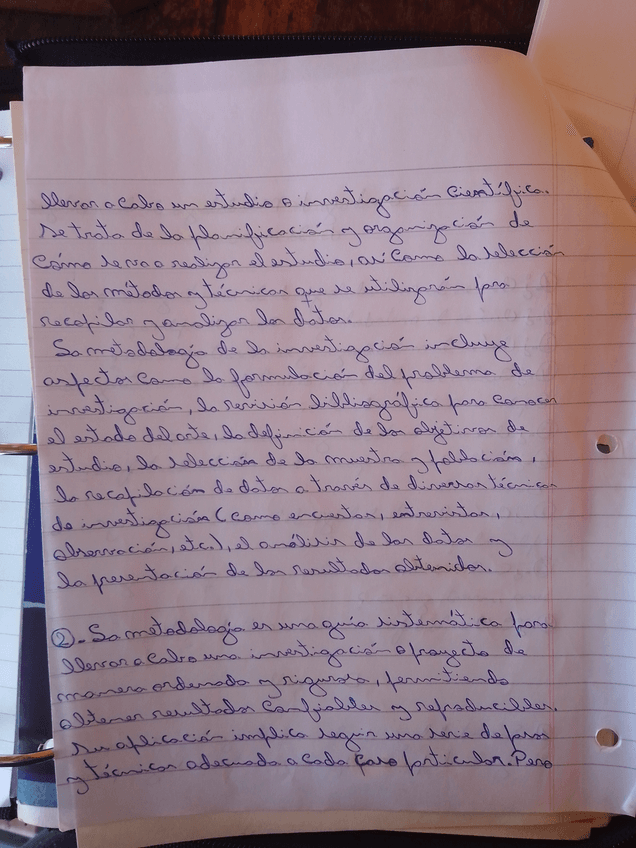 llevar a cabo un estudio o investigación científica.
Se trata de la planificación y organización de
cómo se va a realizar el estudio, así como la selección
de los métodos y técnicas que se utilizarán para
recopilar y analizar los datos.
La metodología de la investigación incluye
aspectos como la formulación del problema de
investigación, la revisión bibliográfica para conocer
el estado del arte, la definición de los objetivos de
estudio, la selección de la muestra y población,
la recopilación de datos a través de diversas técnicas
de investigación (como encuestas, entrevistas,
observación, etc.), el análisis de los datos y
la presentación de los resultados obtenidos.
②- La metodología es una guía sistemática para
llevar a cabo una investigación o proyecto de
manera ordenada y rigurosa, permitiendo
obtener resultados confiables y reproducibles.
Su aplicación implica seguir una serie de pasos
y técnicas adecuada a cada caso particular. Pero